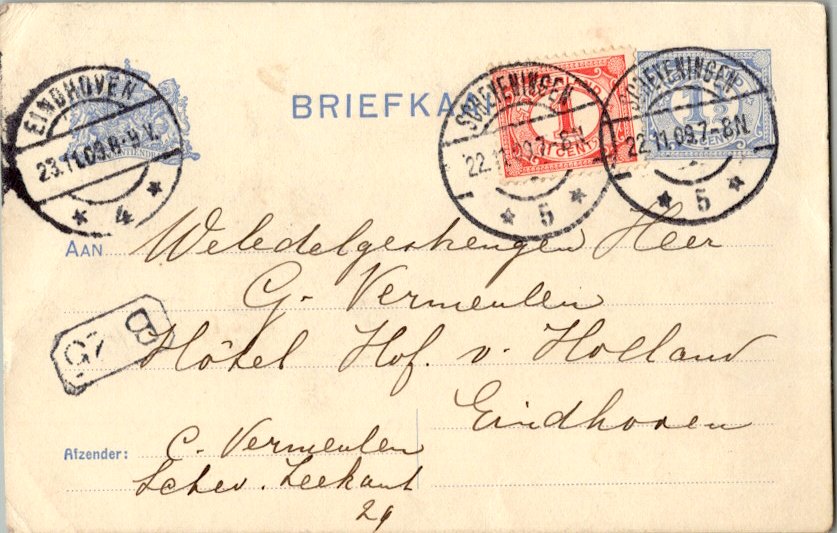 EINDHOVEN
23.11.09.8-9V.
* 4 *
BRIEFKA
SCHEVENINGEN
22.11.09.7-8N
* 5 *
1
CENT
SCHEVENINGEN
22.11.09.7-8N
* 5 *
1
AAN Weledelgestrengen Heer
G. Vermeulen
Hôtel Hof. v. Holland
Eindhoven
Afzender: C. Vermeulen
Schev. Zeekant
29